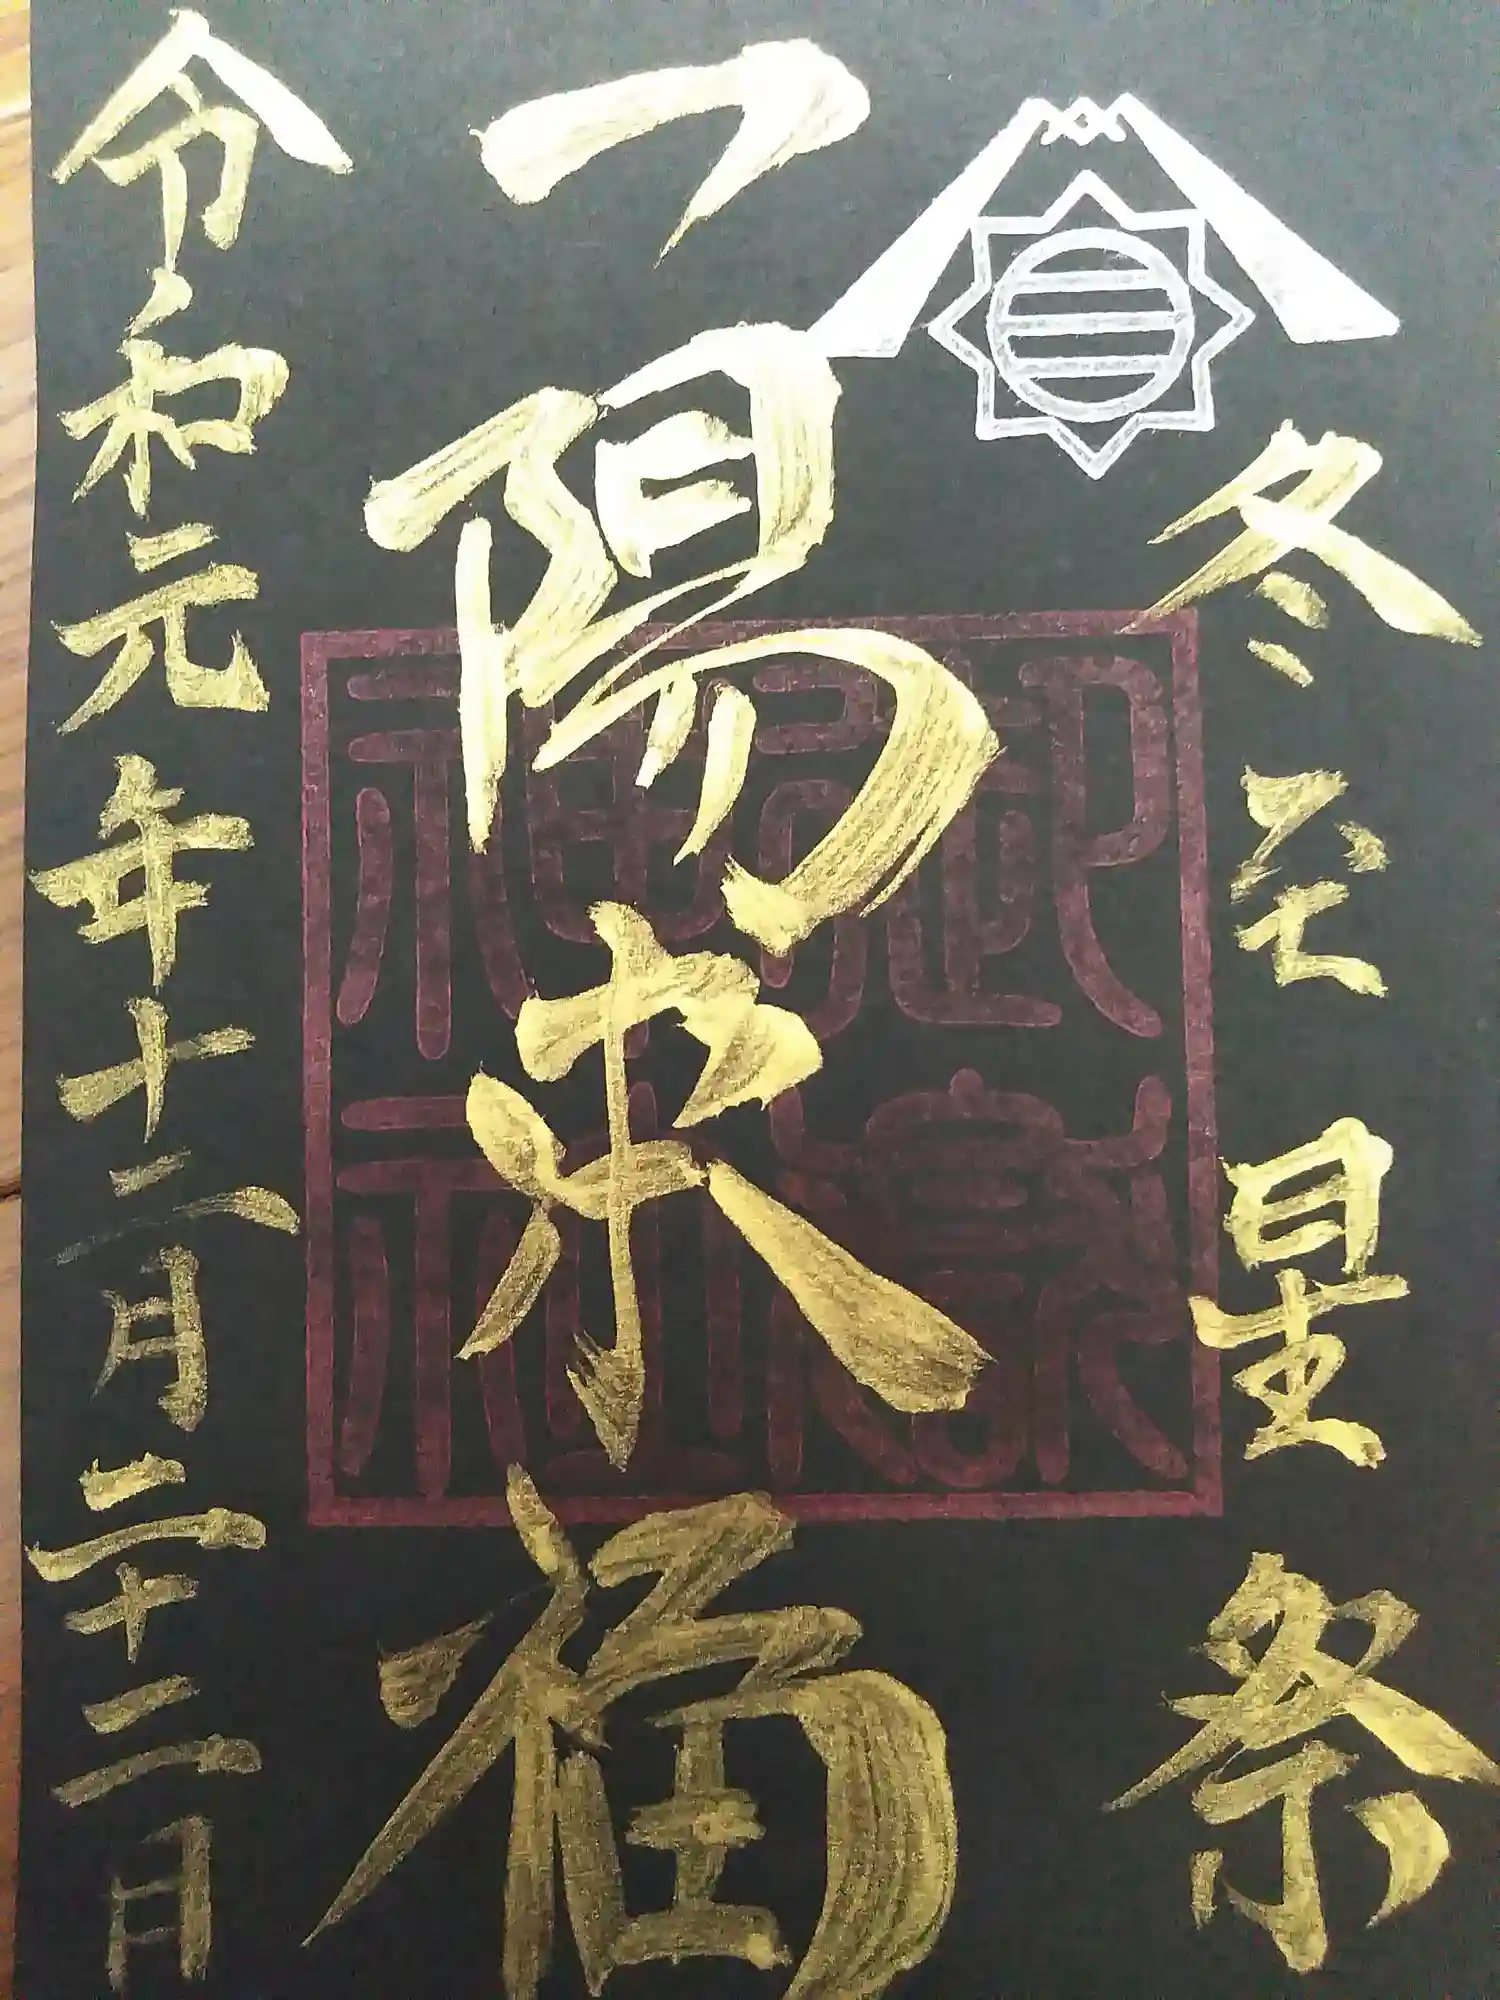 冬至星祭
一陽来福
御嶽
神社
令和元年十二月二十二日